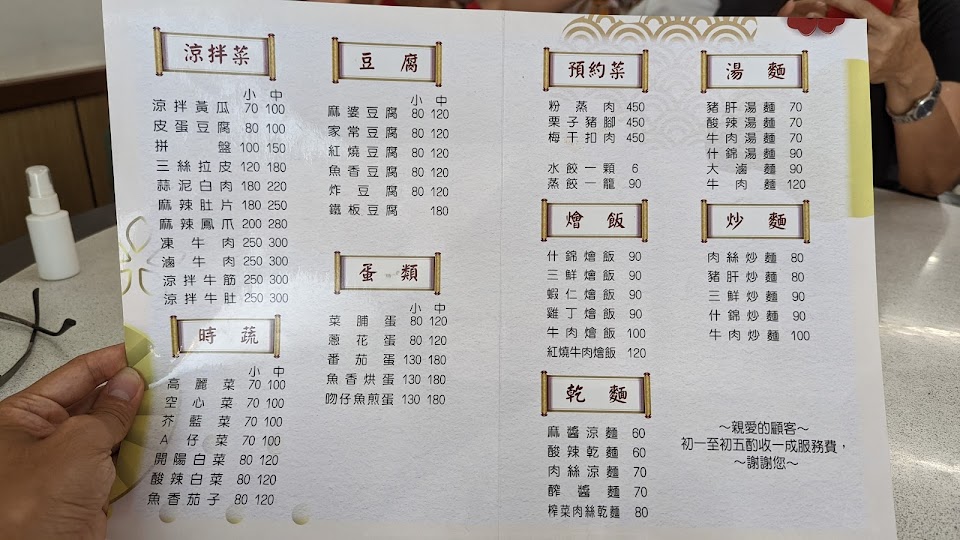 涼拌菜
小 中
涼拌黃瓜 70 100
皮蛋豆腐 80 100
拼盤 100 150
三絲拉皮 120 180
蒜泥白肉 180 220
麻辣肚片 180 250
麻辣鳳爪 200 280
凍牛肉 250 300
滷牛肉 250 300
涼拌牛筋 250 300
涼拌牛肚 250 300
時蔬
小 中
高麗菜 70 100
空心菜 70 100
芥藍菜 70 100
A仔菜 70 100
開陽白菜 80 120
酸辣白菜 80 120
魚香茄子 80 120
豆腐
小 中
麻婆豆腐 80 120
家常豆腐 80 120
紅燒豆腐 80 120
魚香豆腐 80 120
炸豆腐 80 120
鐵板豆腐 180
蛋類
小 中
菜脯蛋 80 120
蔥花蛋 80 120
番茄蛋 130 180
魚香烘蛋 130 180
吻仔魚煎蛋 130 180
預約菜
粉蒸肉 450
栗子豬腳 450
梅干扣肉 450
水餃一顆 6
蒸餃一籠 90
燴飯
什錦燴飯 90
三鮮燴飯 90
蝦仁燴飯 90
雞丁燴飯 90
牛肉燴飯 100
紅燒牛肉燴飯 120
乾麵
麻醬涼麵 60
酸辣乾麵 60
肉絲涼麵 70
醡醬麵 70
榨菜肉絲乾麵 80
湯麵
豬肝湯麵 70
酸辣湯麵 70
牛肉湯麵 70
什錦湯麵 90
大滷麵 90
牛肉麵 120
炒麵
肉絲炒麵 80
豬肝炒麵 90
三鮮炒麵 90
什錦炒麵 90
牛肉炒麵 100
～親愛的顧客～
初一至初五酌收一成服務費，
～謝謝您～